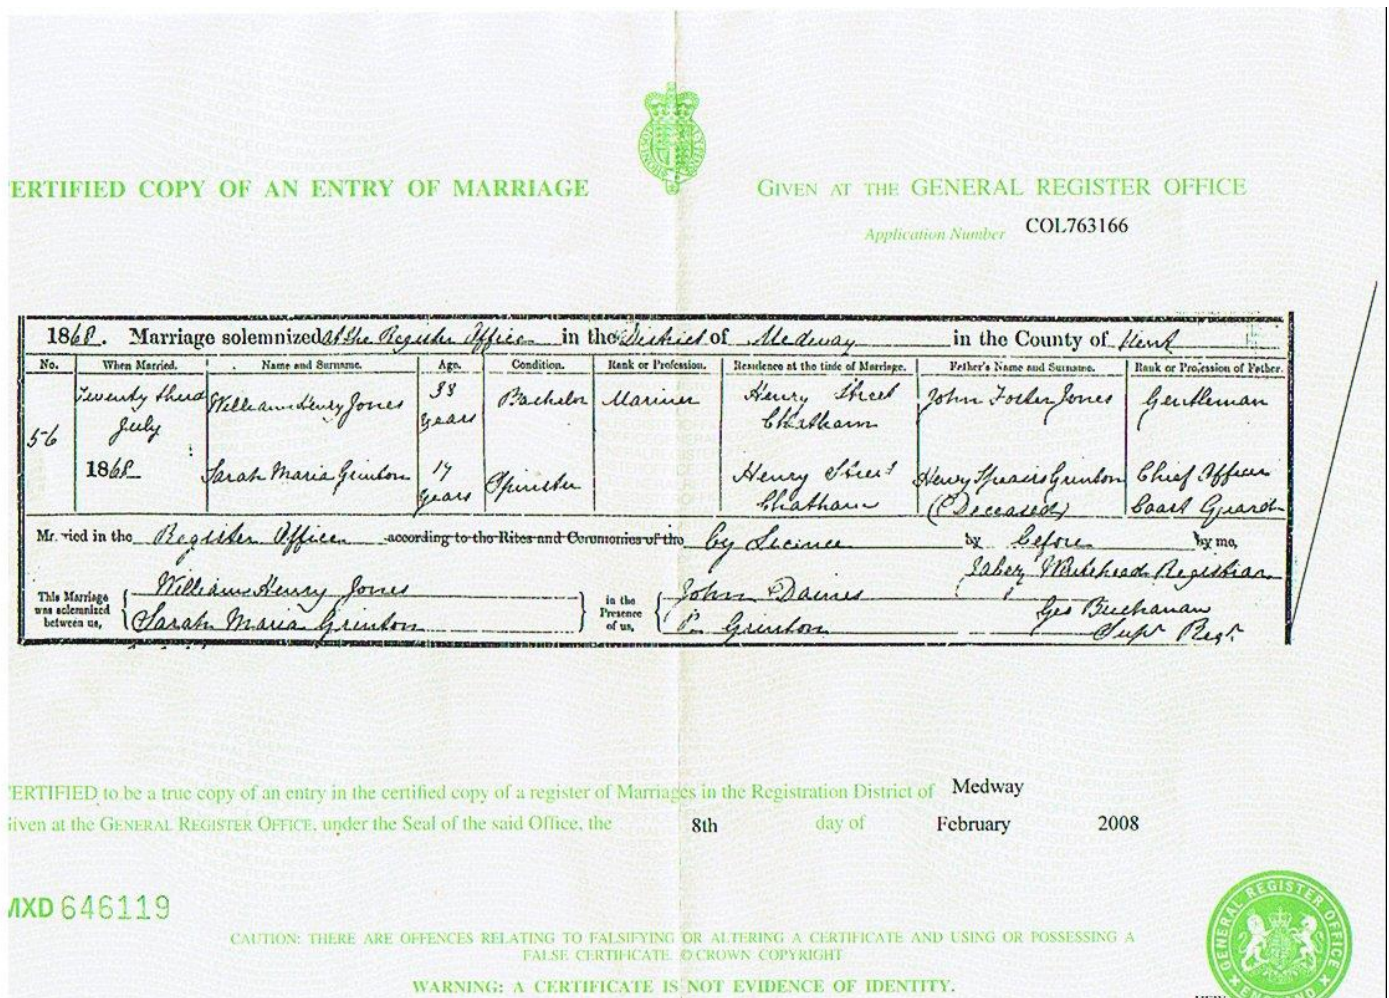 ERTIFIED COPY OF AN ENTRY OF MARRIAGE
GIVEN AT THE GENERAL REGISTER OFFICE
Application Number COL763166
1868. Marriage solemnized at the Register Office in the District of Medway in the County of Kent
No. When Married. Name and Surname. Age. Condition. Rank or Profession. Residence at the time of Marriage. Father's Name and Surname. Rank or Profession of Father.
56
Twenty third July 1868
William Henry Jones 33 years Bachelor Mariner Henry Street Chatham John Foster Jones Gentleman
Sarah Maria Grinton years Spinster Henry Street Chatham Henry Grinton (Deceased) Chief Officer Coast Guard
Married in the Register Office according to the Rites and Ceremonies of the by Licence by before by me,
This Marriage was solemnized between us,
William Henry Jones
Sarah Maria Grinton
in the Presence of us,
John Daines
P. Grinton
Jabez Whitehead Registrar
Geo Buchanan
Supt Regr
ERTIFIED to be a true copy of an entry in the certified copy of a register of Marriages in the Registration District of Medway
iven at the GENERAL REGISTER OFFICE, under the Seal of the said Office, the 8th day of February 2008
MXD 646119
CAUTION: THERE ARE OFFENCES RELATING TO FALSIFYING OR ALTERING A CERTIFICATE AND USING OR POSSESSING A
FALSE CERTIFICATE. © CROWN COPYRIGHT
WARNING: A CERTIFICATE IS NOT EVIDENCE OF IDENTITY.
GENERAL REGISTER OFFICE